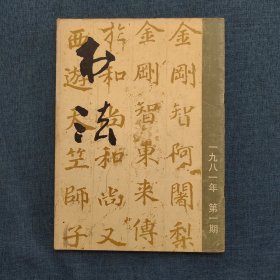 书法
金剛智阿闍梨
金剛智東来傳
扵和尚和尚又
西遊天竺師子
一九八一年 第一期